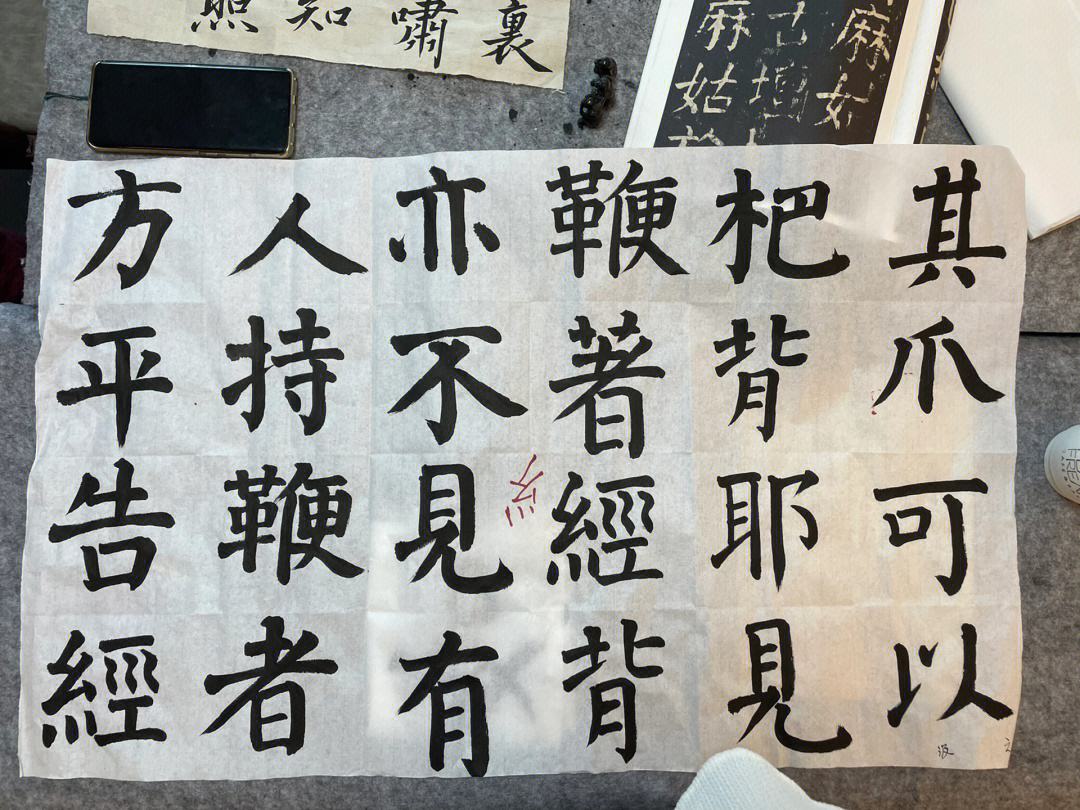 其爪可以
杷背耶見
鞭著經背
亦不見有
人持鞭者
方平告經
裏
嘯
知
照
麻姑
麻姑